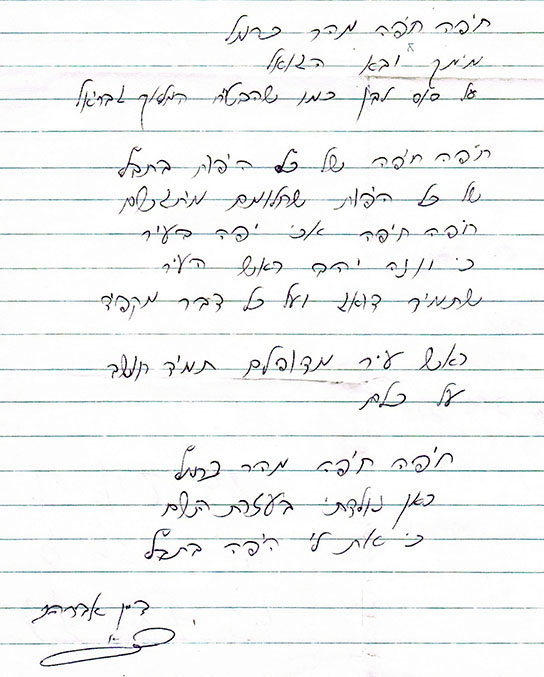 חיפה חיפה מהר כרמל
ובא הגואל
על סוס לבן כמו שהבטיח המלאך גבריאל
חיפה חיפה של כל היפות בתבל
של כל היפות שחלומם מתגשם
חיפה חיפה הכי יפה בעיר
כי יונה יהב ראש העיר
שתמיד דואג ועל כל דבר מקפיד
ראש עיר מדופלם תמיד חושב
על כולם
חיפה חיפה מהר כרמל
כאן נולדתי בעזרת השם
כי את לי היפה בתבל